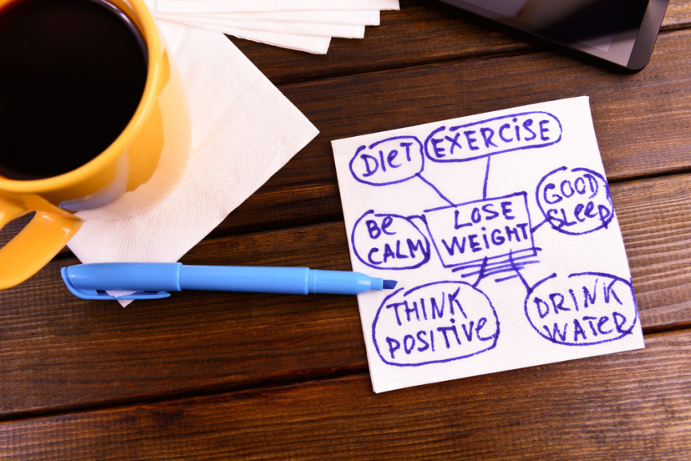 DIET
EXERCISE
GOOD
SLEEP
BE
CALM
LOSE
WEIGHT
THINK
POSITIVE
DRINK
WATER